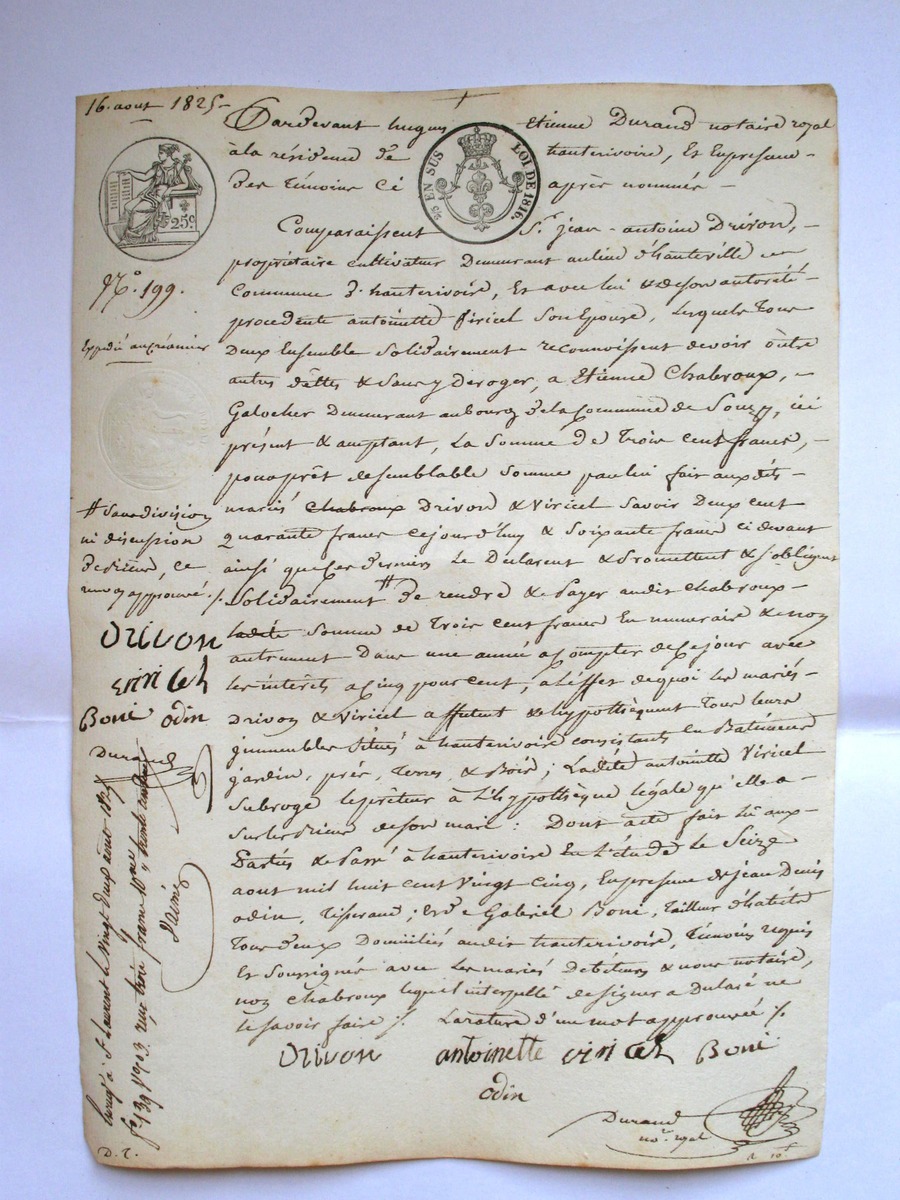 16. aout 1825 -
Pardevant hugues Etienne Durand notaire royal
à la résidence de hauterivoire, Et En presence -
des témoins Ci après nommés -
5/5 EN SUS LOI DE 1816.
25 c.
Comparaissent Sr. jean - antoine Drivon, -
propriétaire cultivateur Demeurant au lieu d'hauteville en
Commune d'hauterivoire, Et avec lui & de son autorité
procedente antoinette Viricel Son Epouse, Lesquels Tous
Deux Ensemble Solidairement reconnoissent devoir outre
autres dettes & Sans y Deroger, a Etienne Chabroux, -
Galocher Demeurant au bourg de la Commune de Souzy, ici
présent & acceptant, La Somme de Trois cent francs, -
pour prêt de semblable Somme par lui fait auxdits -
mariés Chabroux Drivon & Viricel Savoir Deux cent
quarante francs cejourd'huy & Soixante francs ci devant
ainsi que Ces derniers Le Déclarent & Promettent & S'obligent
Solidairement # De rendre & de Payer audit Chabroux -
ladite Somme de Trois cent francs En numeraire & non
autrement Dans une année a Compter de ce jour avec
Les interêts a Cinq pour cent, a L'effet de quoi les mariés -
Drivon & Viricel affectent & hypothèquent Tous leurs
jmmeubles Situés à hauterivoire consistants En Batiments
jardin, prés, Terres, & Bois; Ladite antoinette Viricel
Subroge le prêteur à L'hypothèque légale qu'elle a -
Sur les Biens de son mari: Dont acte fait lû aux -
Parties & Passé à hauterivoire En L'étude Le Seize
aout mil huit cent Vingt Cinq, En presence de jean Denis
odin, Tisserand; Et de Gabriel Boni, Tailleur d'habits
Tous deux Domiciliés audit hauterivoire, Témoins requis
Et Soussignés avec Les mariés Debiteurs & nous notaire,
non Chabroux lequel interpellé de signer a Déclaré ne
le Savoir faire /. La rature d'un mot approuvée /.
Drivon antoinette viricel Boni
odin
Durand
nore. royal
No. 199.
Expédié au créancier
# Sans division
ni discussion
de Biens, ce
renvoy approuvé /.
Drivon
viricel
Boni odin
Durand
Enregé à St Laurent le Vingt deux aout 1825
fo. 139 Vo. reçu trois francs 10me trente centimes
D. 2.